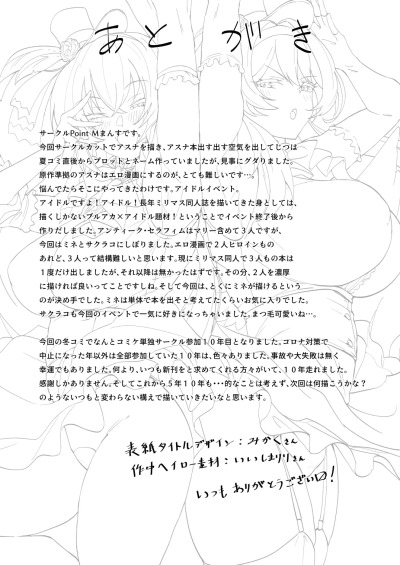 あとがき
サークルPoint Mまんすです。
今回サークルカットでアスナを描き、アスナ本出す出す空気を出してじつは
夏コミ直後からプロットとネーム作っていましたが、見事にグダりました。
原作準拠のアスナはエロ漫画にするのが、とても難しいです…。
悩んでたらそこにやってきたわけです。アイドルイベント。
アイドルですよ!アイドル!長年ミリマス同人誌を描いてきた身としては、
描くしかないブルアカ×アイドル題材!ということでイベント終了後から
作りだしました。アンティーク・セラフィムはマリー含めて3人ですが、
今回はミネとサクラコにしぼりました。エロ漫画で2人ヒロインもの
あれど、3人って結構難しいと思います。現にミリマスで3人もの本は
1度だけ出しましたが、それ以降は無かったはずです。その分、2人を濃厚
に描ければ良いってことですしね。そして今回は、とくにミネが描けるという
のが決め手でした。ミネは単体で本を出そと考えてたくらいお気に入りでした。
サクラコも今回のイベントで一気に好きになっちゃいました。まつ毛可愛いね…。
今回の冬コミでなんとコミケ単独サークル参加10年目となりました。コロナ対策で
中止になった年以外は全部参加していた10年は、色々ありました。事故や大失敗は無く
幸運でもありました。何より、いつも新刊をと求めてくれる方々がいて、10年走れました。
感謝しかありません。そしてこれから5年10年も・・・的なことは考えず、次回は何描こうかな?
のようないつもと変わらない構えで描いていきたいなと思います。
表紙タイトルデザイン:みかくさん
作中ヘイロー素材:いいしまりりさん
いつもありがとうございぬ!